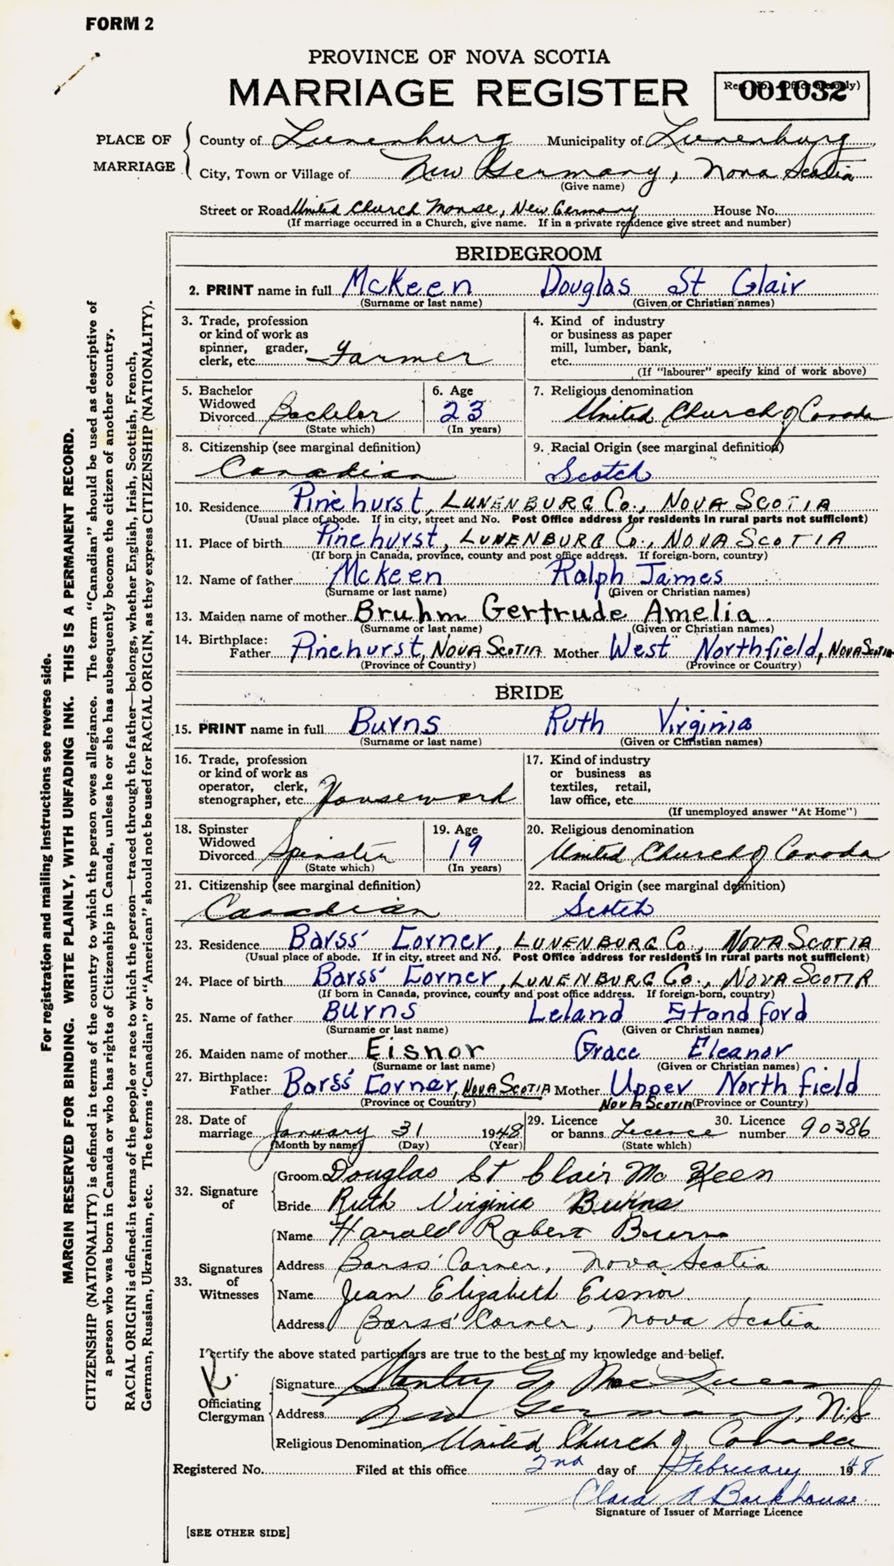 FORM 2
PROVINCE OF NOVA SCOTIA
MARRIAGE REGISTER
001032
PLACE OF MARRIAGE
County of Lunenburg Municipality of Lunenburg
City, Town or Village of New Germany, Nova Scotia
(Give name)
Street or Road United Church Manse, New Germany House No.
(If marriage occurred in a Church, give name. If in a private residence give street and number)
BRIDEGROOM
2. PRINT name in full McKeen Douglas St Clair
(Surname or last name) (Given or Christian names)
3. Trade, profession or kind of work as spinner, grader, clerk, etc. Farmer
4. Kind of industry or business as paper mill, lumber, bank, etc.
(If "labourer" specify kind of work above)
5. Bachelor Widowed Divorced Bachelor
(State which)
6. Age 23
(In years)
7. Religious denomination
United Church of Canada
8. Citizenship (see marginal definition)
Canadian
9. Racial Origin (see marginal definition)
Scotch
10. Residence Pinehurst, LUNENBURG Co., NOVA SCOTIA
(Usual place of abode. If in city, street and No. Post Office address for residents in rural parts not sufficient)
11. Place of birth Pinehurst, LUNENBURG Co., NOVA SCOTIA
(If born in Canada, province, county and post office address. If foreign-born, country)
12. Name of father McKeen Ralph James
(Surname or last name) (Given or Christian names)
13. Maiden name of mother Bruhm Gertrude Amelia
(Surname or last name) (Given or Christian names)
14. Birthplace: Father Pinehurst, NOVA SCOTIA Mother West Northfield, NOVA SCOTIA
(Province of Country) (Province or Country)
BRIDE
15. PRINT name in full Burns Ruth Virginia
(Surname or last name) (Given or Christian names)
16. Trade, profession or kind of work as operator, clerk, stenographer, etc. Houseword
17. Kind of industry or business as textiles, retail, law office, etc.
(If unemployed answer "At Home")
18. Spinster Widowed Divorced Spinster
(State which)
19. Age 19
(In years)
20. Religious denomination
United Church of Canada
21. Citizenship (see marginal definition)
Canadian
22. Racial Origin (see marginal definition)
Scotch
23. Residence Barss' Corner, LUNENBURG Co, NOVA SCOTIA
(Usual place of abode. If in city, street and No. Post Office address for residents in rural parts not sufficient)
24. Place of birth Barss' Corner, LUNENBURG Co., NOVA SCOTIA
(If born in Canada, province, county and post office address. If foreign-born, country)
25. Name of father Burns Leland Standford
(Surname or last name) (Given or Christian names)
26. Maiden name of mother Eisnor Grace Eleanor
(Surname or last name) (Given or Christian names)
27. Birthplace: Father Barss' Corner, NOVA SCOTIA Mother Upper Northfield
(Province or Country) NOVA SCOTIA (Province or Country)
28. Date of marriage January 31 1948
(Month by name) (Day) (Year)
29. Licence or banns Licence
(State which)
30. Licence number 90386
32. Signature of
Groom Douglas St Clair Mc Keen
Bride Ruth Virginia Burns
33. Signatures of Witnesses
Name Harold Robert Burns
Address Barss' Corner, Nova Scotia
Name Jean Elizabeth Eisnor
Address Barss' Corner, Nova Scotia
I certify the above stated particulars are true to the best of my knowledge and belief.
Officiating Clergyman
Signature Stanley G. MacQueen
Address New Germany, N.S
Religious Denomination United Church of Canada
Registered No. Filed at this office 2nd day of February 1948
Clara A Barkhouse
Signature of Issuer of Marriage Licence
[SEE OTHER SIDE]
For registration and mailing instructions see reverse side.
MARGIN RESERVED FOR BINDING. WRITE PLAINLY, WITH UNFADING INK. THIS IS A PERMANENT RECORD.
CITIZENSHIP (NATIONALITY) is defined in terms of the country to which the person owes allegiance. The term "Canadian" should be used as descriptive of
a person who was born in Canada or who has rights of Citizenship in Canada, unless he or she has subsequently become the citizen of another country.
RACIAL ORIGIN is defined in terms of the people or race to which the person—traced through the father—belongs, whether English, Irish, Scottish, French,
German, Russian, Ukrainian, etc. The terms "Canadian" or "American" should not be used for RACIAL ORIGIN, as they express CITIZENSHIP (NATIONALITY).